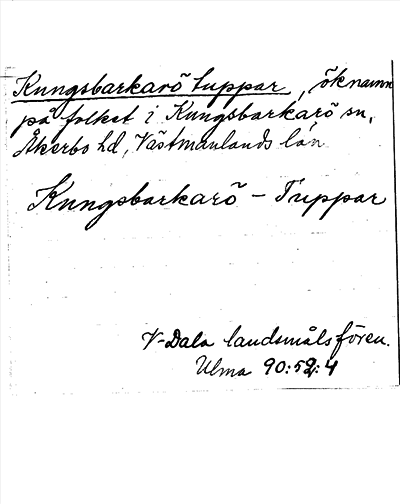 Kungsbarkarö tuppar, öknamn
på folket i Kungsbarkarö sn,
Åkerbo hd, Västmanlands län
Kungsbarkarö - Tuppar
V-Dala landsmålsfören.
Ulma 90:52:4